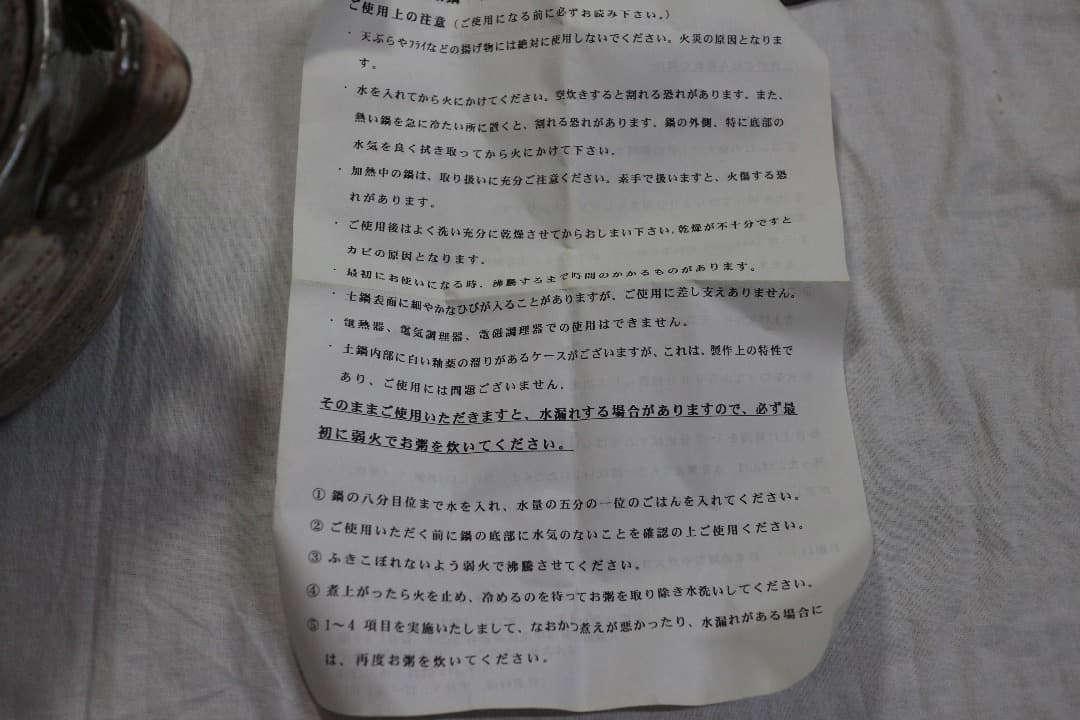 ご使用上の注意（ご使用になる前に必ずお読み下さい。）
・天ぷらやフライなどの揚げ物には絶対に使用しないでください。火災の原因となりま
す。
・水を入れてから火にかけてください。空炊きすると割れる恐れがあります。また、
熱い鍋を急に冷たい所に置くと、割れる恐れがあります。鍋の外側、特に底部の
水気を良く拭き取ってから火にかけて下さい。
・加熱中の鍋は、取り扱いに充分ご注意ください。素手で扱いますと、火傷する恐
れがあります。
・ご使用後はよく洗い充分に乾燥させてからおしまい下さい。乾燥が不十分ですと
カビの原因となります。
・最初にお使いになる時、沸騰するまで時間のかかるものがあります。
・土鍋表面に細やかなひびが入ることがありますが、ご使用に差し支えありません。
・電熱器、電気調理器、電磁調理器での使用はできません。
・土鍋内部に白い釉薬の溜りがあるケースがございますが、これは、製作上の特性で
あり、ご使用には問題ございません。
そのままご使用いただきますと、水漏れする場合がありますので、必ず最
初に弱火でお粥を炊いてください。
① 鍋の八分目位まで水を入れ、水量の五分の一位のごはんを入れてください。
② ご使用いただく前に鍋の底部に水気のないことを確認の上ご使用ください。
③ ふきこぼれないよう弱火で沸騰させてください。
④ 煮上がったら火を止め、冷めるのを待ってお粥を取り除き水洗いしてください。
⑤ 1～4 項目を実施いたしまして、なおかつ煮えが悪かったり、水漏れがある場合に
は、再度お粥を炊いてください。